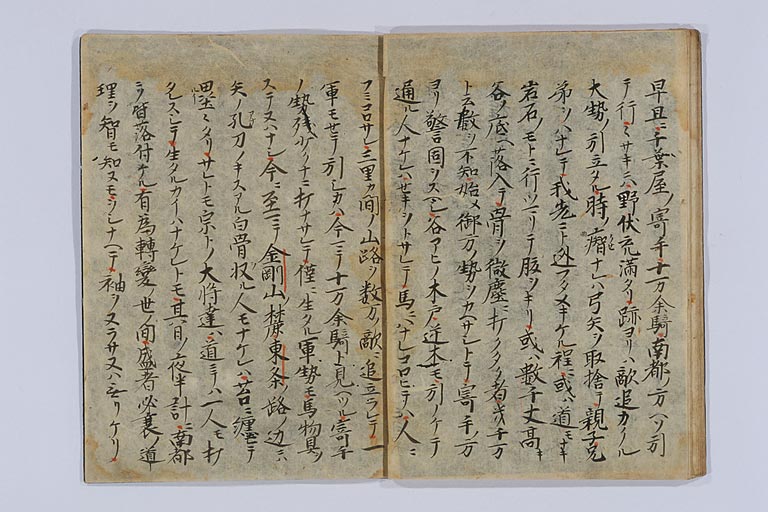 早旦ニ千葉屋ノ寄手十万余騎南都ノ方ヘソ引
テ行ミサキニハ野伏充満タリ跡ヨリハ敵追カクル
大勢ノ引立タル時ノ癖ナレハ弓矢ヲ取捨テ親子兄
弟ヲハナレテ我先ニト迯フタメキケル程ニ或ハ道モナキ
岩石ノモトニ行ツマリテ腹ヲキリ或ハ数千丈高キ
谷ノ底ヘ落入テ骨ヲ微塵ニ打クタク者幾千万
ト云数ヲ不知始メ御方ノ勢ヲカヘサシトテ寄手ノ方
ヨリ警固ヲスヘシ谷アヒノ木戸逆木モ引ノケテ
通ル人ナケレハセキヲトサレテハ馬ニハナレコロヒテハ人ニ
フミコロサレ二三里カ間ノ山路ヲ数万ノ敵ニ追立ラレテ一
軍モセテ引シカハ今マテ十万余騎ト見ヘツル寄手
ノ勢残少クナニ打ナサレテ僅ニ生タル軍勢モ馬物具ヲ
ステヌハナシ今ニ至マテ金剛山ノ麓東条路ノ辺ニハ
矢ノ孔刀ノキスアル白骨収ル人モナケレハ苔ニ纏テ
塁々タリサレトモ宗トノ大将達ハ道ニテハ一人モ打
タレスシテ生タルカイハナケレトモ其日ノ夜半計ニ南都
ニソ皆落付ケル有為轉變ノ世ノ間盛者必衰ノ道
理ヲ智モ知ヌモヲシナヘテ袖ヲヌラサヌハ無リケリ